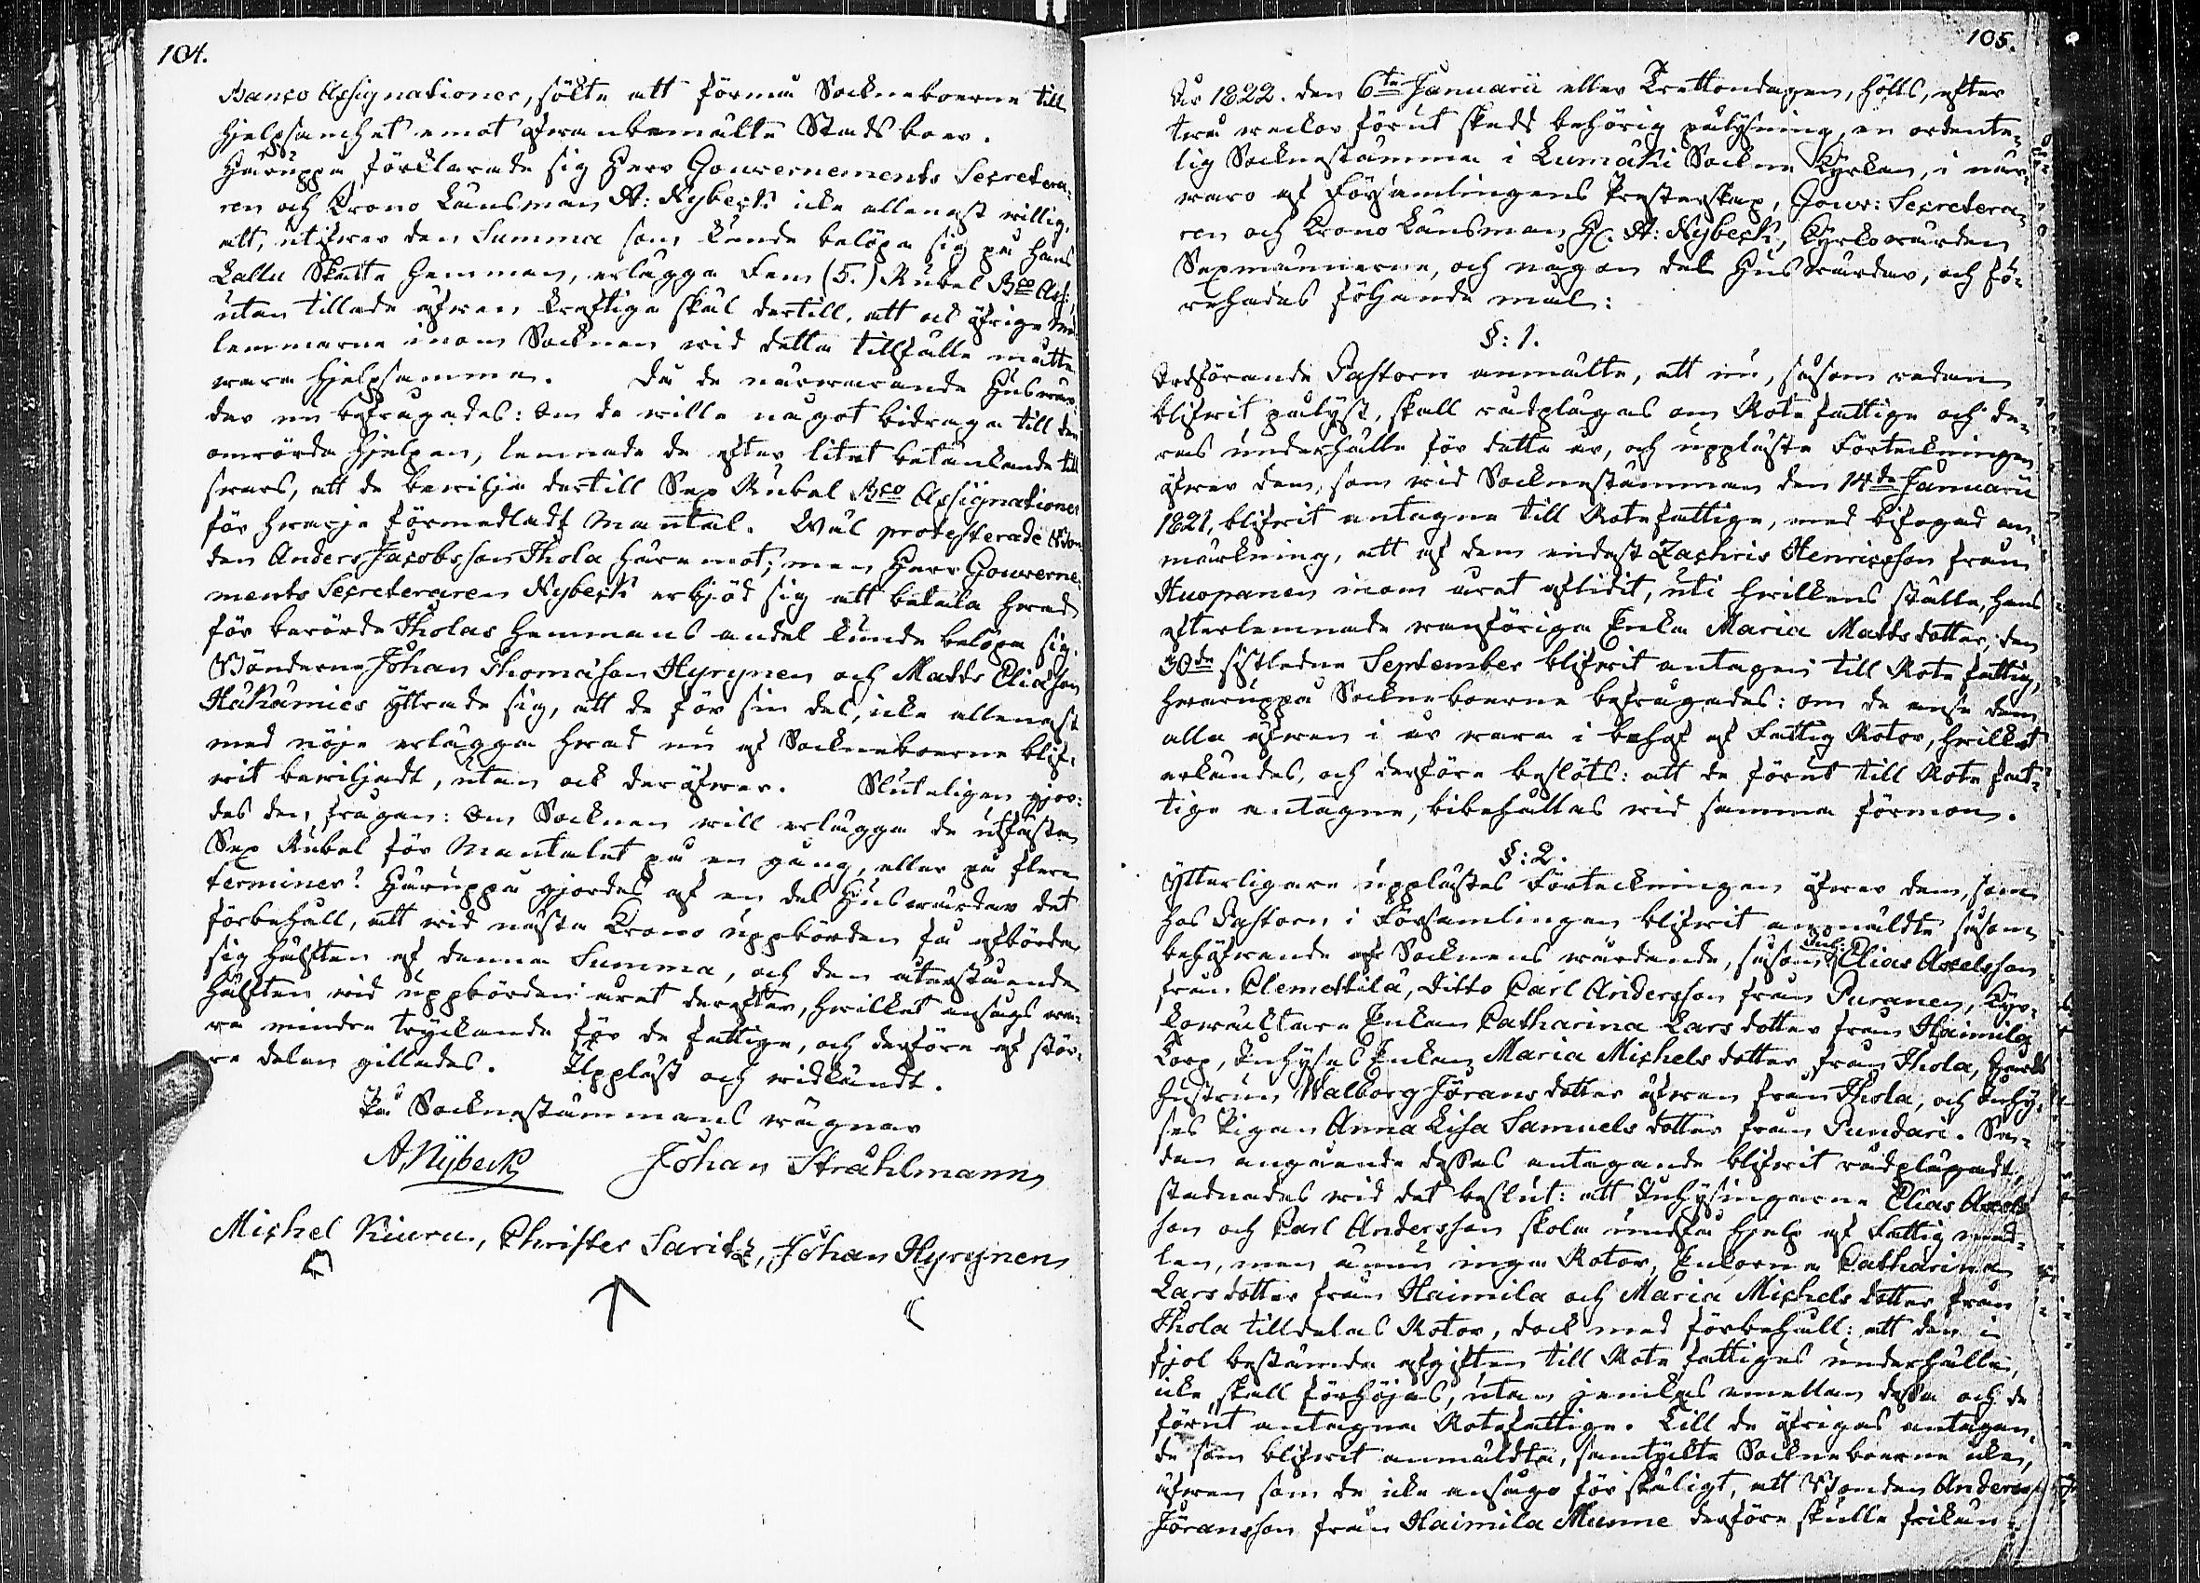 104.
Banco Assignationer, sökte att förmå Sockneboerne till
hjelpsamhet emot ofvanbemälte Stadsboer.
Häruppå förklarade sig Herr Gouvernements Secretera-
ren och Krono Länsman A: Nybeck icke allenast villig,
att, utöfver den Summa som kunde belöpa sig på hans
Lallu Skatte hemman, erlägga Fem (5.) Rubel Bco Ass:
utan tillade äfven kraftiga skäl dertill, att ock öfrige med-
lemmarne inom Socknen vid detta tillfälle måtte
vara hjelpsamme. Då de närvarande Husvär-
dar nu befrågades: Om de ville något bidraga till den
omrörda hjelpen, lemnade de efter litet betänkande till
svars, att de bevilja dertill Sex Rubel Bco Assignationer
för hvarje förmedladt Mantal. Wäl protesterade Bon-
den Anders Jacobsson Ihola häremot; men Herr Gouverne-
ments Secreteraren Nybeck erbjöd sig att betala hvad
för berörde Iholas hemmans andel kunde belöpa sig.
Bönderne Johan Thomasson Hyrynen och Matts Eliasson
Häkämies yttrade sig, att de för sin del, icke allenast
med nöje erlägga hvad nu af Sockneboerne blif-
vit beviljadt, utan ock deröfver. Sluteligen gjor-
des den frågan: Om Socknen vill erlägga de utfästa
Sex Rubel för Mantalet på en gång, eller på flera
terminer? Häruppå gjordes af en del Husvärdar det
förbehåll, att vid nästa Krono uppbörden få afbörda
sig hälften af denna Summa, och den återstående
hälften vid uppbörden året derefter, hvilket ansågs va-
ra mindre tryckande för de fattige, och derföre af stör-
re delen gillades. Uppläst och vidkändt.
På Socknestämmans vägnar
A. Nybeck Johan Stråhlmann
Michel Kiuru, Christer Saritz, Johan Hyrynen
105.
År 1822. den 6te Januarii eller Trettondagen, hölls, efter
två veckor förut skedd behörig pålysning, en ordente-
lig Socknestämma i Lumäki Sockne Kyrkan, i när-
varo af Församlingens Presterskap, Gouv: Secretera-
ren och Krono Länsman H. A: Nybeck, Kyrkovärden
Sexmännerne, och någon del Husvärdar, och fö-
rehades följande mål:
§: 1.
Ordförande Pastorn anmälte, att nu, såsom redan
blifvit pålyst, skall rådplägas om Rote fattige och de-
ras underhålle för detta år, och upplästes Förteckningen
öfver dem, som vid Socknestämman den 14de Januarii
1821, blifvit antagne till Rotefattige, med bifogad an-
märkning, att af dem endast Zachris Henricsson från
Kuopanen inom året aflidit, uti hvilkens ställe, hans
efterlemnade vanföriga Enka Maria Mattsdotter, den
30de sistledne September blifvit antagen till Rote fattig,
hvaruppå Sockneboerne befrågades: om de anse dem
alla äfven i år vara i behof af Fattig Rotor, hvilket
erkändes, och derföre beslöts: att de förut till Rote fat-
tige antagne, bibehållas vid samma förmon.
§: 2.
Ytterligare upplästes Förteckningen öfver dem, som
hos Pastorn i Församlingen blifvit anmäldte såsom
behöfvande af Socknens vårdande, såsom Inh: Elias Axelsson
från Clemettilä, Ditto Carl Andersson från Puranen, Kyr-
kovaktare Enkan Catharina Larsdotter från Haimila
Torp, Inhyses Enkan Maria Michelsdotter från Ihola,
hustrun Walborg Jöransdotter äfven från Ihola, och Inhy-
ses Pigan Anna Lisa Samuelsdotter från Pundari. Se-
dan angående desses antagande blifvit rådplägadt,
stadnades vid det beslut: att Inhysingarne Elias Axels-
son och Carl Andersson skola undfå hjelp af Fattig med-
len, men ännu inga Rotor, Enkorna Catharina
Larsdotter från Haimila och Maria Michelsdotter från
Ihola tilldelas Rotor, dock med förbehåll: att den i
fjol bestämda afgiften till Rote fattiges underhålle,
icke skall förhöjas, utan jemkas emellan dessa och de
förut antagna Rotefattige. Till de öfrigas antagan-
de som blifvit anmäldta, samtyckte Sockneboerne icke,
äfven som de icke ansågo för skäligt, att Bonden Anders
Jöransson från Haimila Munne derföre skulle frikän-